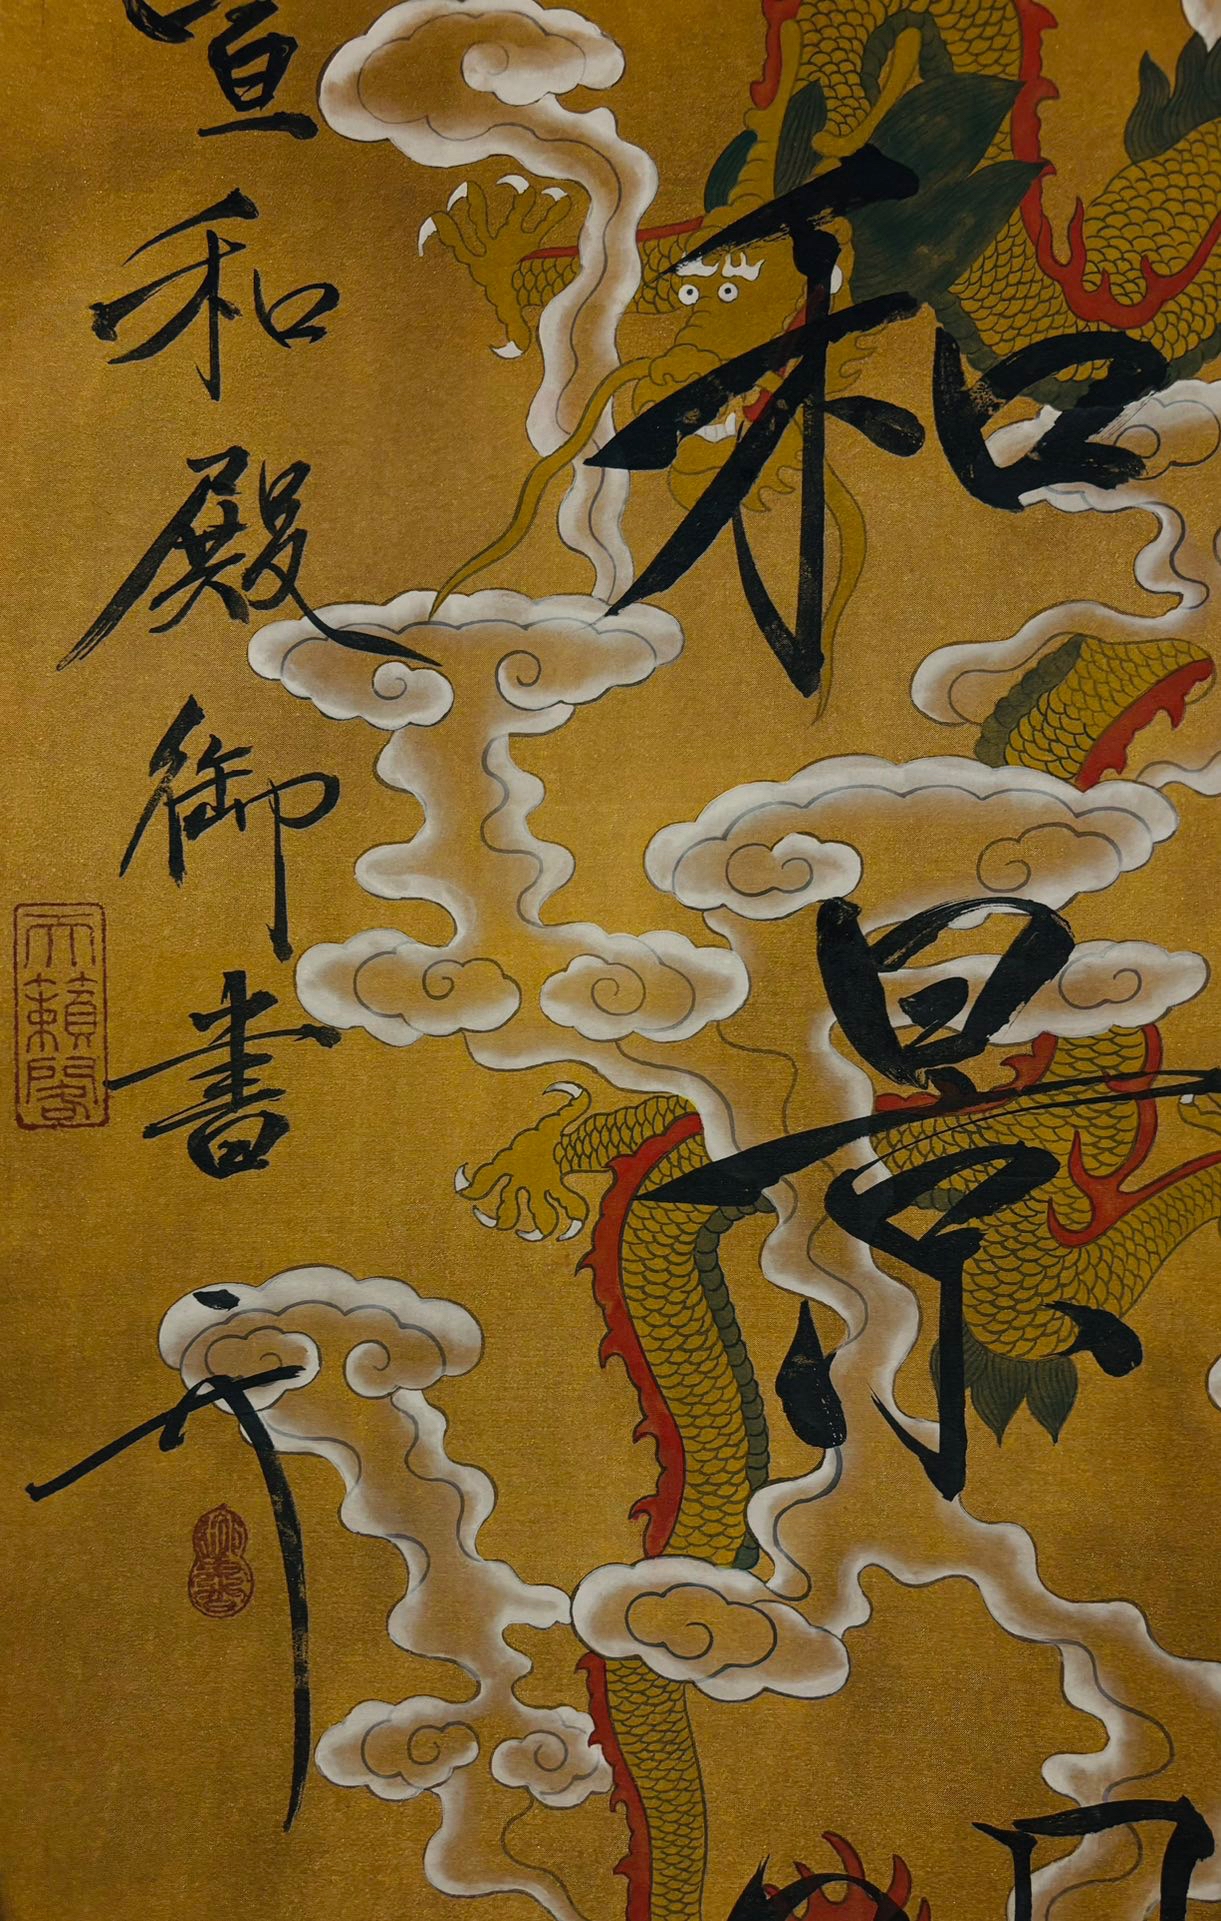 和景
宣和殿御書
天籟閣